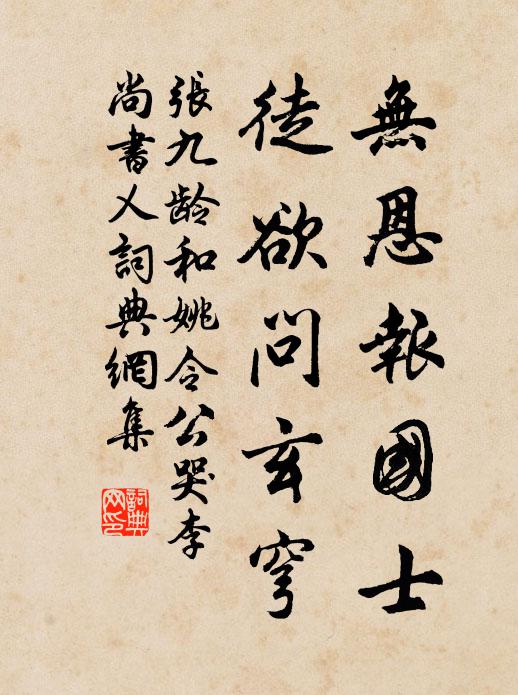 無恩報國士
徒欲問玄穹
張九龄和姚令公哭李
尚書乂詞典網集
詞典
网印